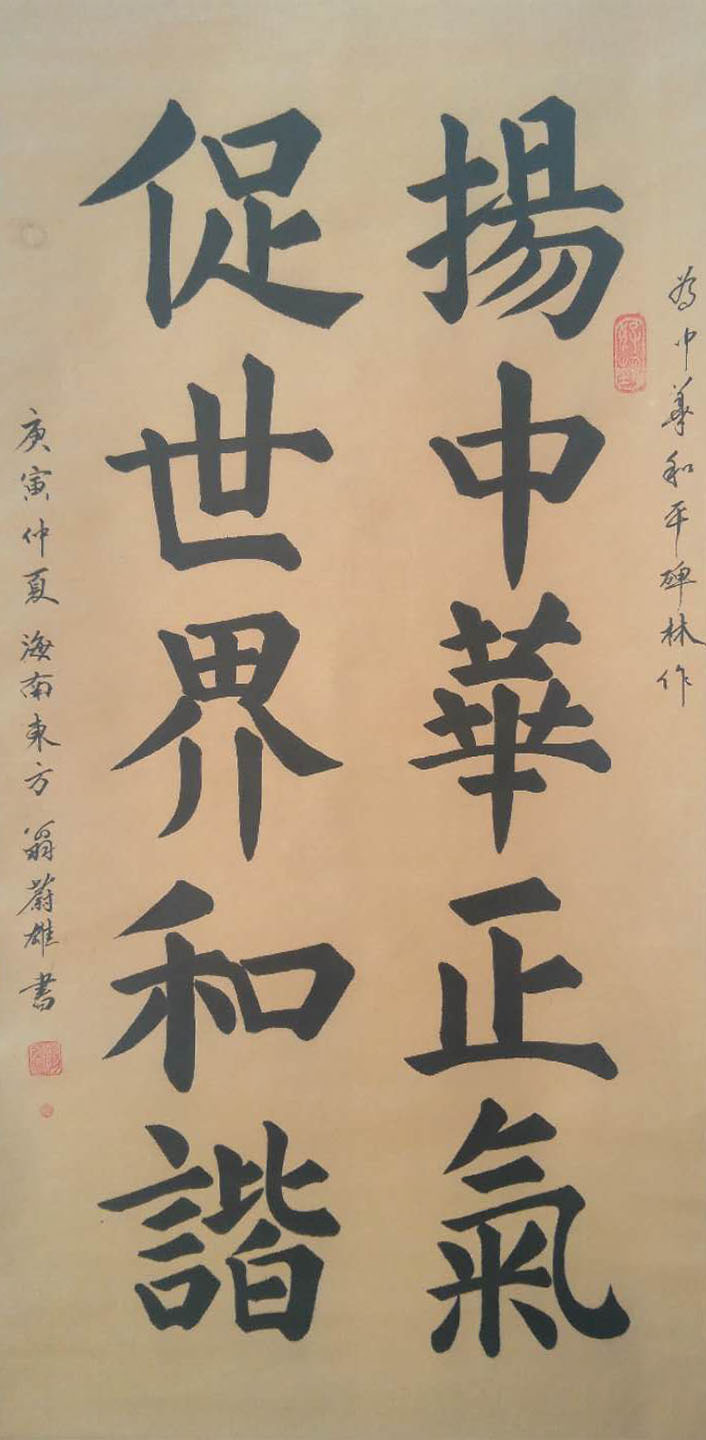 為中華和平碑林作
揚中華正氣
促世界和諧
庚寅仲夏海南東方翁蔚雄書